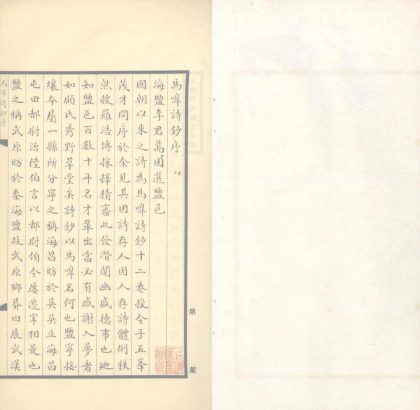 馬嘷詩鈔序
海鹽李君萬田選鹽邑
國朝以來之詩為馬嘷詩鈔十二卷授令子五峯
茂才問序於余見其因詩存人因人存詩體例秩
然搜羅浩博採擇精審此發潛闡幽盛德事也迴
知鹽邑百數十年名才輩出當必有感謝入夢者
如顧氏秀野草堂矣詩鈔以馬嘷名何也鹽寧接
壤今屬一縣所分寧之稱海昌昉於吳吳立海昌
屯田都尉治陸伯言以都尉領令屢遷宰相是也
鹽之稱武原昉於秦海鹽故武原鄉莽曰展武漢
第
葉